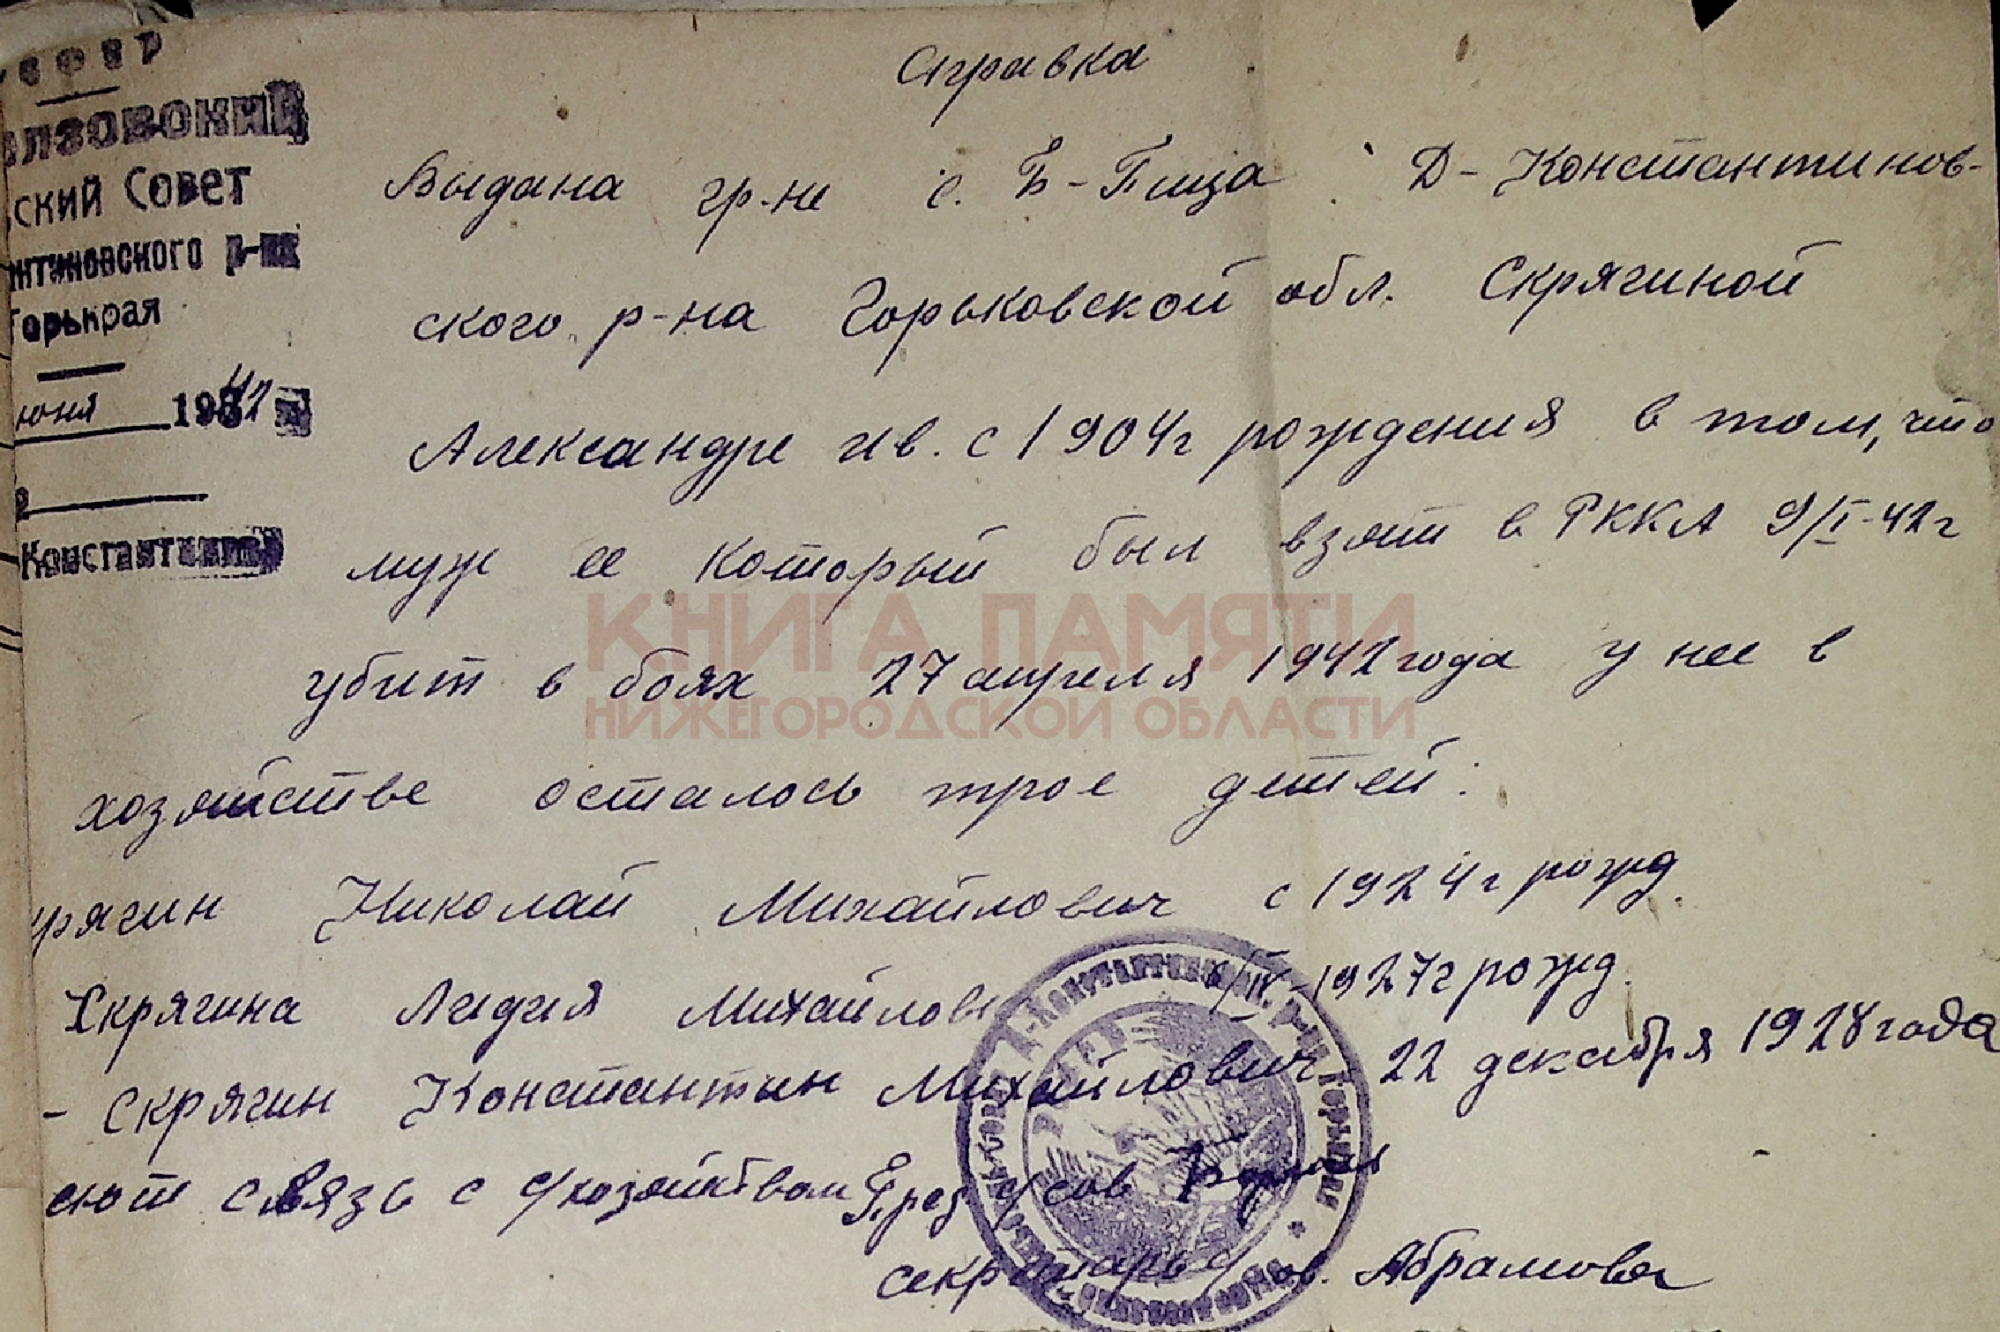 РСФСР
лзовский
ский Совет
нтиновского р-на
Горькрая
юня 1942
Константиново
Справка
Выдана гр-не с. Б-Пица Д-Константинов-
ского р-на Горьковской обл. Скрягиной
Александре Ив. с 1904г рождения в том, что
муж ее который был взят в РККА 9/I-42г
убит в боях 27 апреля 1942 года у нее в
хозяйстве осталось трое детей:
рягин Николай Михайлович с 1924г рожд.
Скрягина Лидия Михайлов 6/IV-1927г рожд.
- Скрягин Константин Михайлович 22 декабря 1928 года
еют связь с с/хозяйством Пред с/сов
секретарь с/сов. Абрамова
КНИГА ПАМЯТИ
НИЖЕГОРОДСКОЙ ОБЛАСТИ